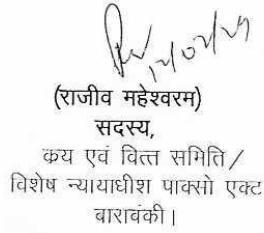 12/02/24
(राजीव महेश्वरम)
सदस्य,
कय एवं वित्त समिति/
विशेष न्यायाधीश पाक्सो एक्ट
बारावंकी।